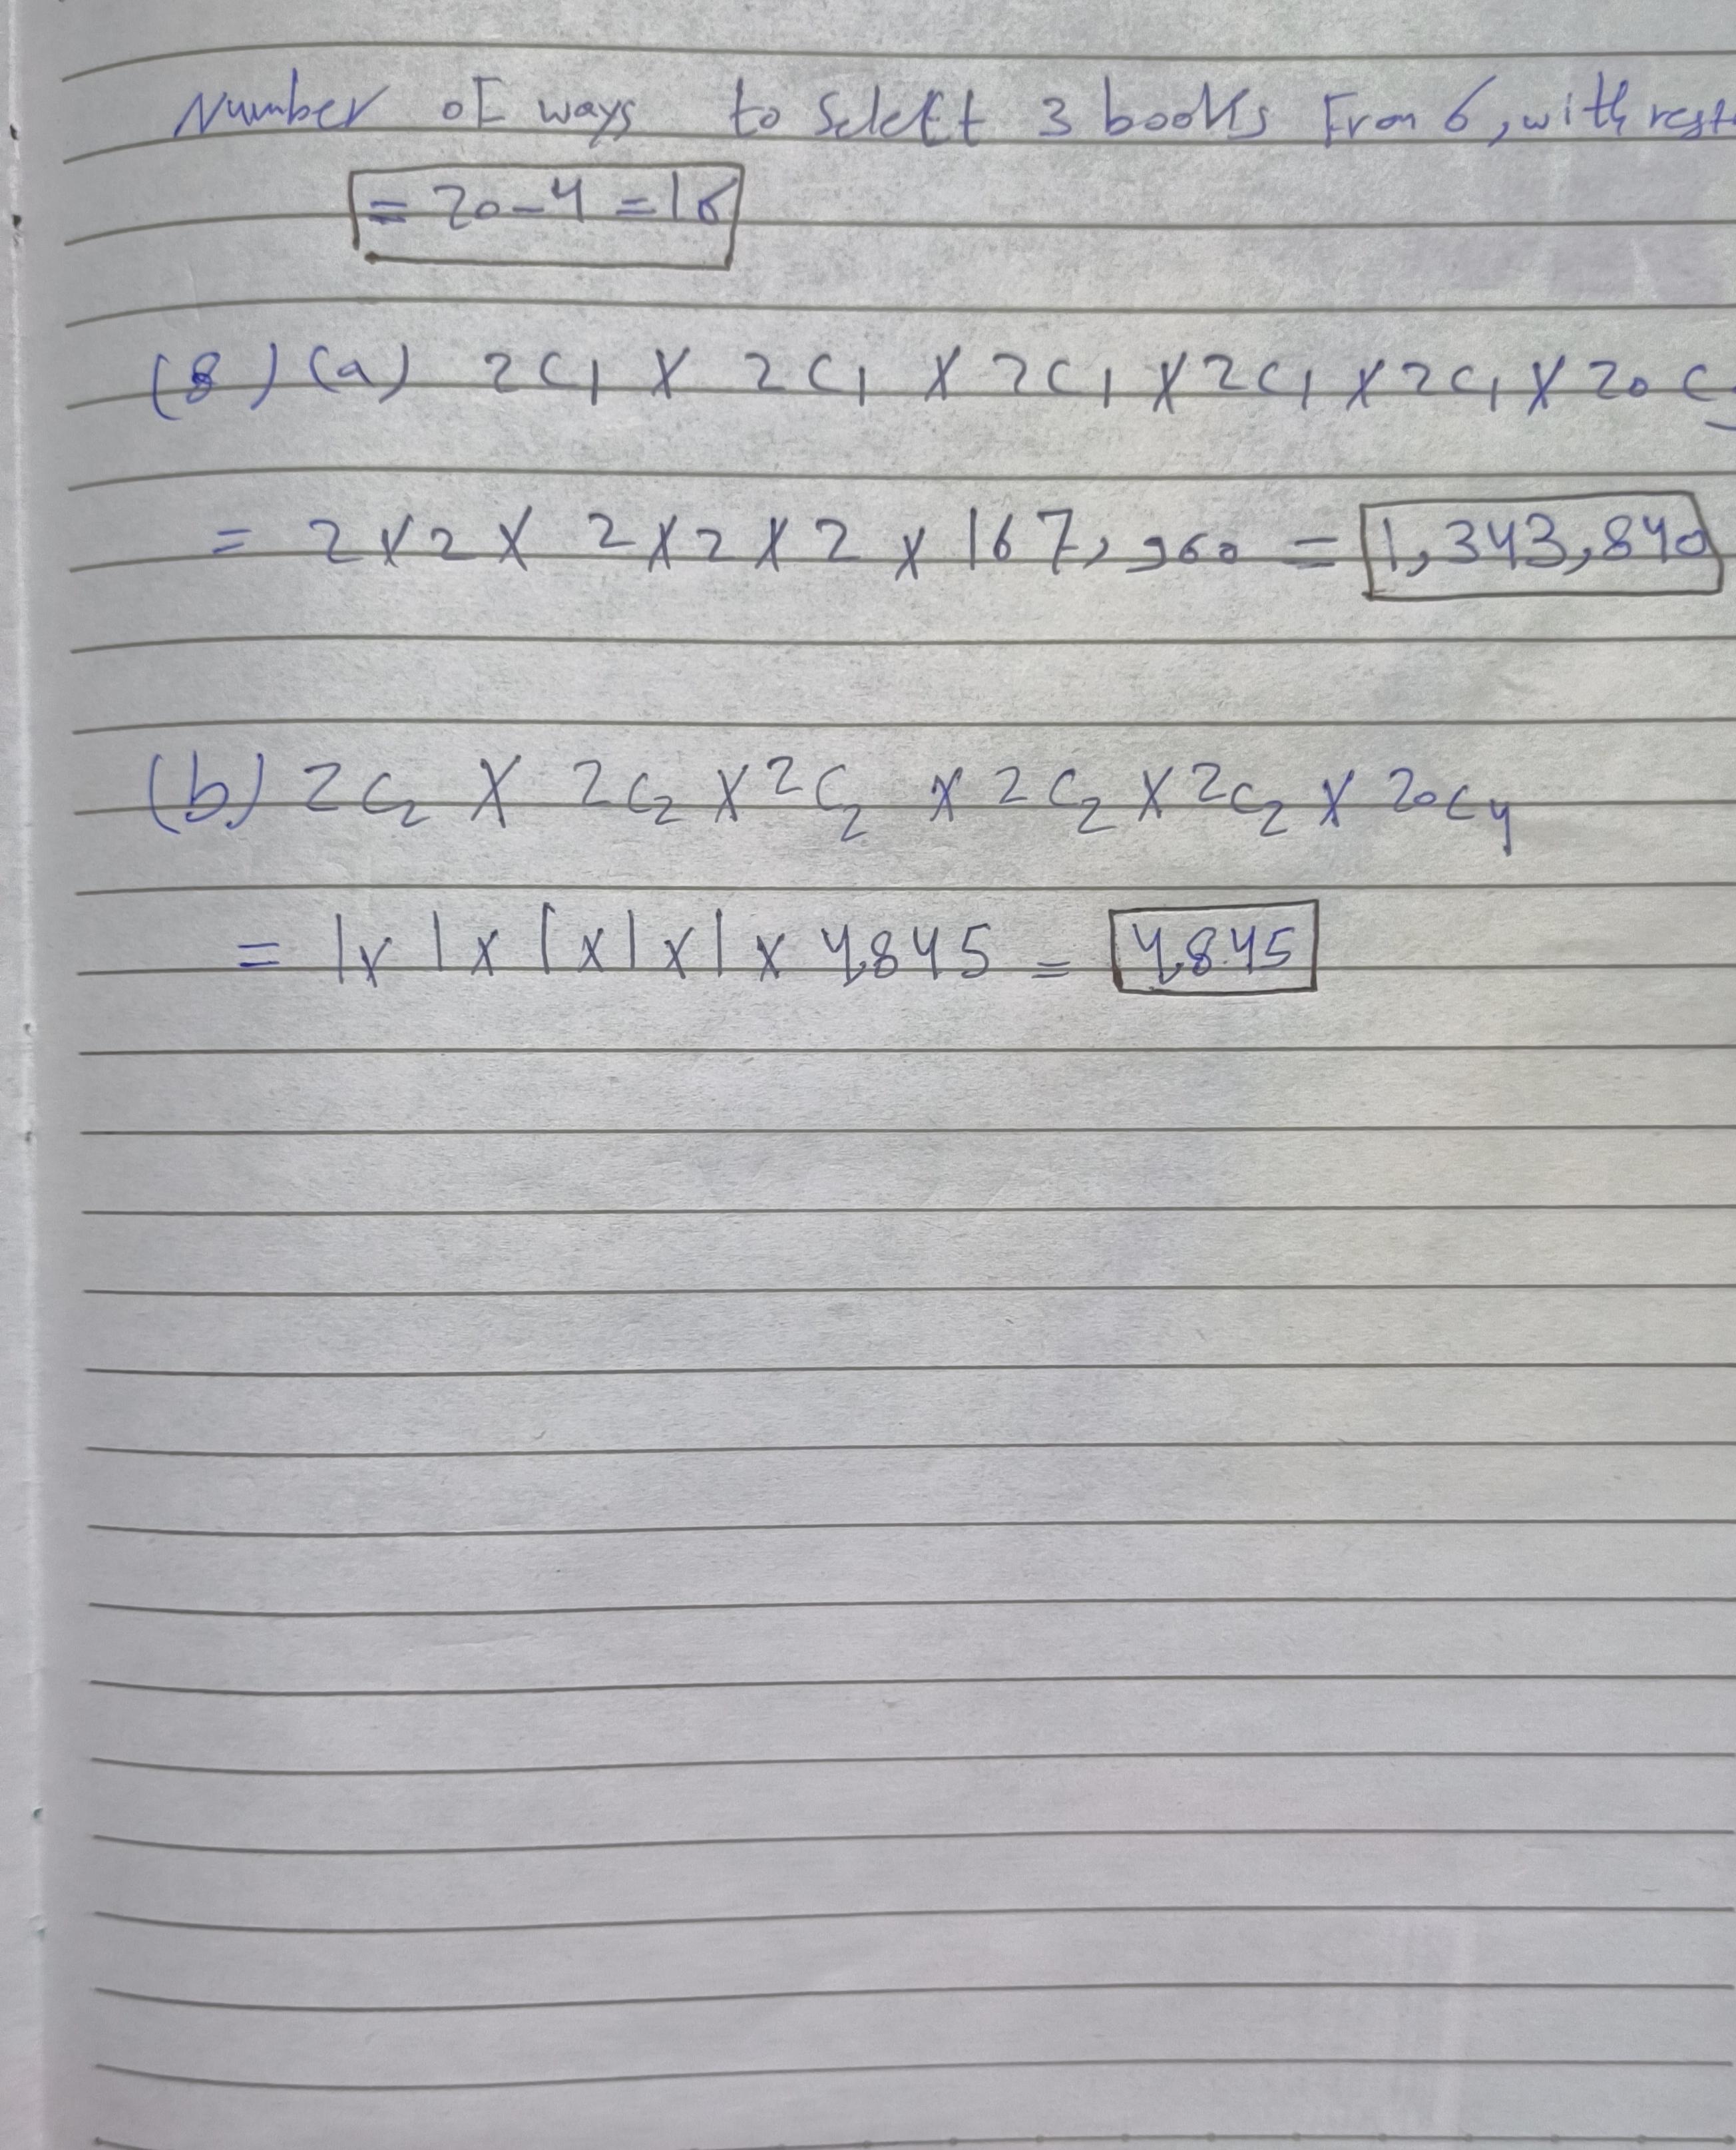 Number of ways to select 3 books From 6, with rest
= 20 - 4 = 16
(8) (a) 2C1 X 2C1 X 2C1 X 2C1 X 2C1 X 20C
= 2 x 2 X 2 X 2 X 2 x 167,960 = 1,343,840
(b) 2C2 X 2C2 X 2C2 X 2C2 X 2C2 X 20C4
= 1 x 1 x 1 x 1 x 1 x 4,845 = 4,845